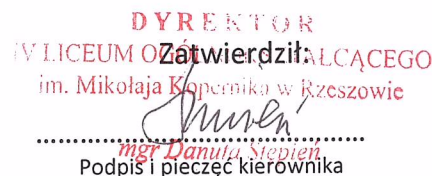 DYREKTOR
Zatwierdził:
IV LICEUM OGÓLNOKSZTAŁCĄCEGO
im. Mikołaja Kopernika w Rzeszowie
mgr Danuta Stępień
Podpis i pieczęć kierownika